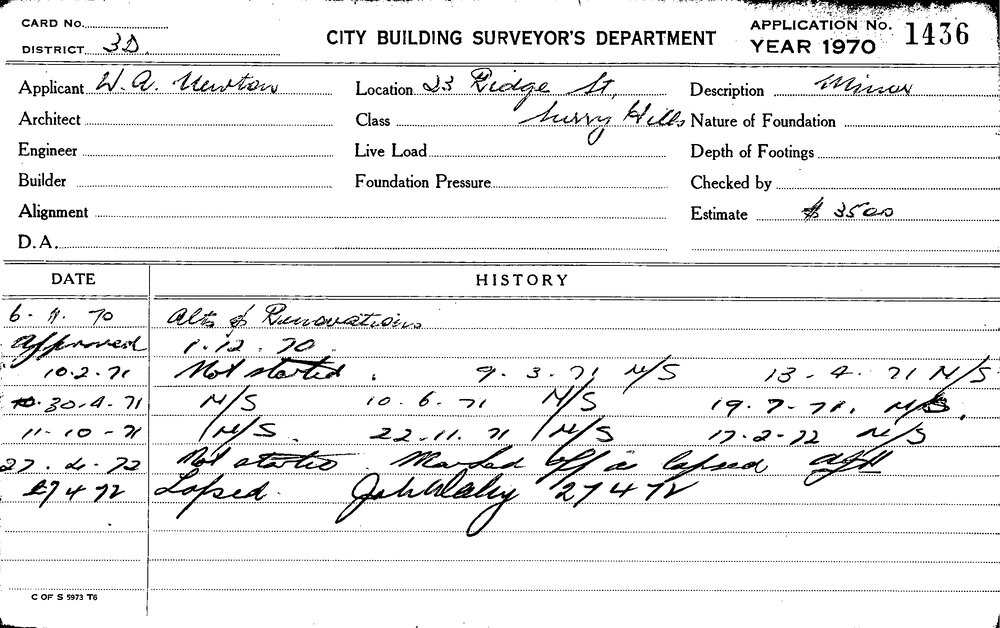 CARD No.
DISTRICT 3D.
CITY BUILDING SURVEYOR'S DEPARTMENT
APPLICATION No. 1436
YEAR 1970
Applicant W. A. Newton
Location 23 Ridge St,
Surry Hills
Description Minor
Architect
Class
Nature of Foundation
Engineer
Live Load
Depth of Footings
Builder
Foundation Pressure
Checked by
Alignment
Estimate $ 3500
D.A.
DATE HISTORY
6. 11. 70 Alts & Renovations
Approved 1.12.70.
10.2.71 Not started. 9.3.71 N/S 13-4.71 N/S.
30.4.71 N/S 10.6.71 N/S 19.7-71. N/S.
11-10-71 N/S. 22.11.71 N/S 17-2-72 N/S
27.4.72 Not started. Marked off as lapsed
27 4 72 Lapsed. 27 4 72
C OF S 5973 T6